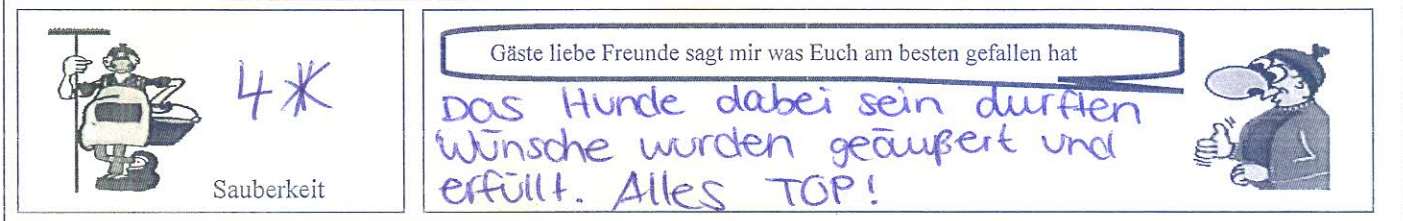 4*
Sauberkeit
Gäste liebe Freunde sagt mir was Euch am besten gefallen hat
Das Hunde dabei sein durften
Wünsche wurden geäußert und
erfüllt. Alles TOP!